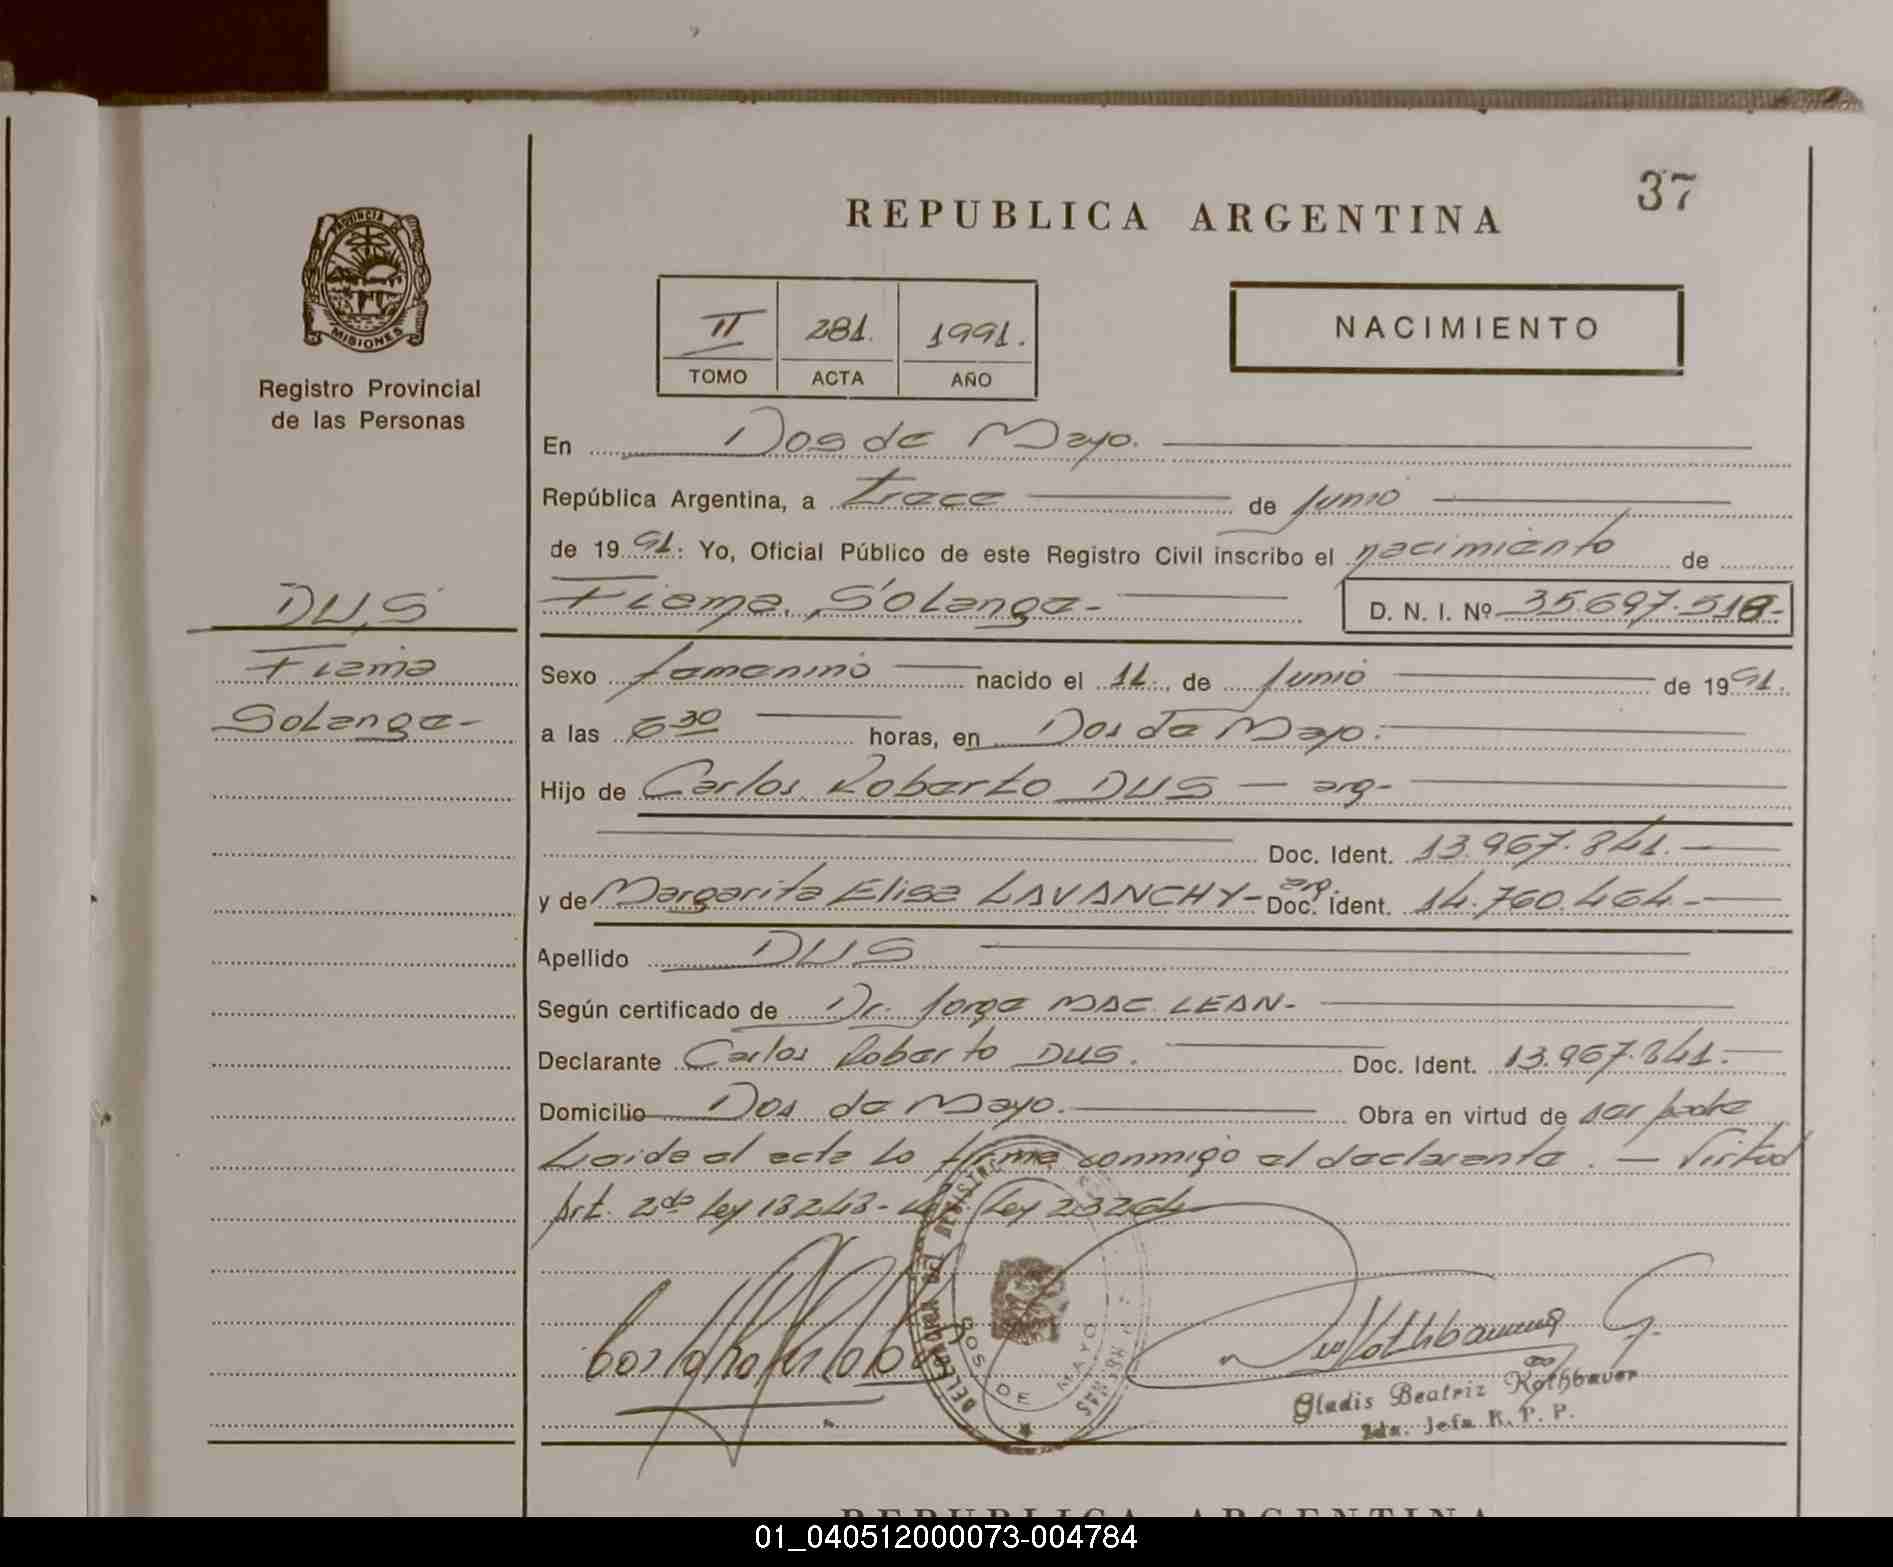 37
REPUBLICA ARGENTINA
PROVINCIA DE
MISIONES
Registro Provincial
de las Personas
II 281. 1991.
TOMO ACTA AÑO
NACIMIENTO
En Dos de Mayo.
República Argentina, a trece de Junio
de 1991: Yo, Oficial Público de este Registro Civil inscribo el nacimiento de
DUS
Fiama Solange-
Fiama, Solange- D. N. I. Nº 35.697.518-
Sexo femenino nacido el 11 de Junio de 1991.
a las 6 30 horas, en Dos de Mayo.
Hijo de Carlos Roberto DUS - arg-
Doc. Ident. 13.967.841.-
y de Margarita Elisa LAVANCHY- arg. Doc. Ident. 14.760.464.-
Apellido DUS
Según certificado de Dr. Jorge MAC LEAN-
Declarante Carlos Roberto DUS. Doc. Ident. 13.967.841.-
Domicilio Dos de Mayo. Obra en virtud de ser padre
Leida el acta lo firma conmigo el declarante. - Virtud
Art. 2do Ley 18248- Ley 23264
DOS DE MAYO
Gladis Beatriz Rothbauer
2da. Jefa R. P. P.
REPUBLICA ARGENTINA
01_040512000073-004784